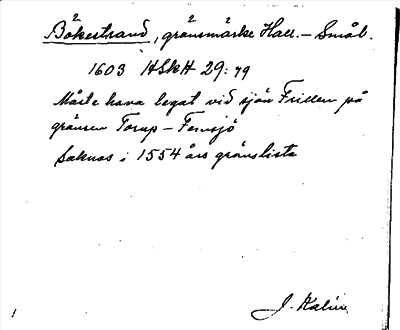 Bökestrand, gränsmärke Hall. – Smål.
1603 HSkH 29:79
Måste hava legat vid sjön Frillen på
gränsen Torup – Femsjö
Saknas i 1554 års gränslista
J. Kalén